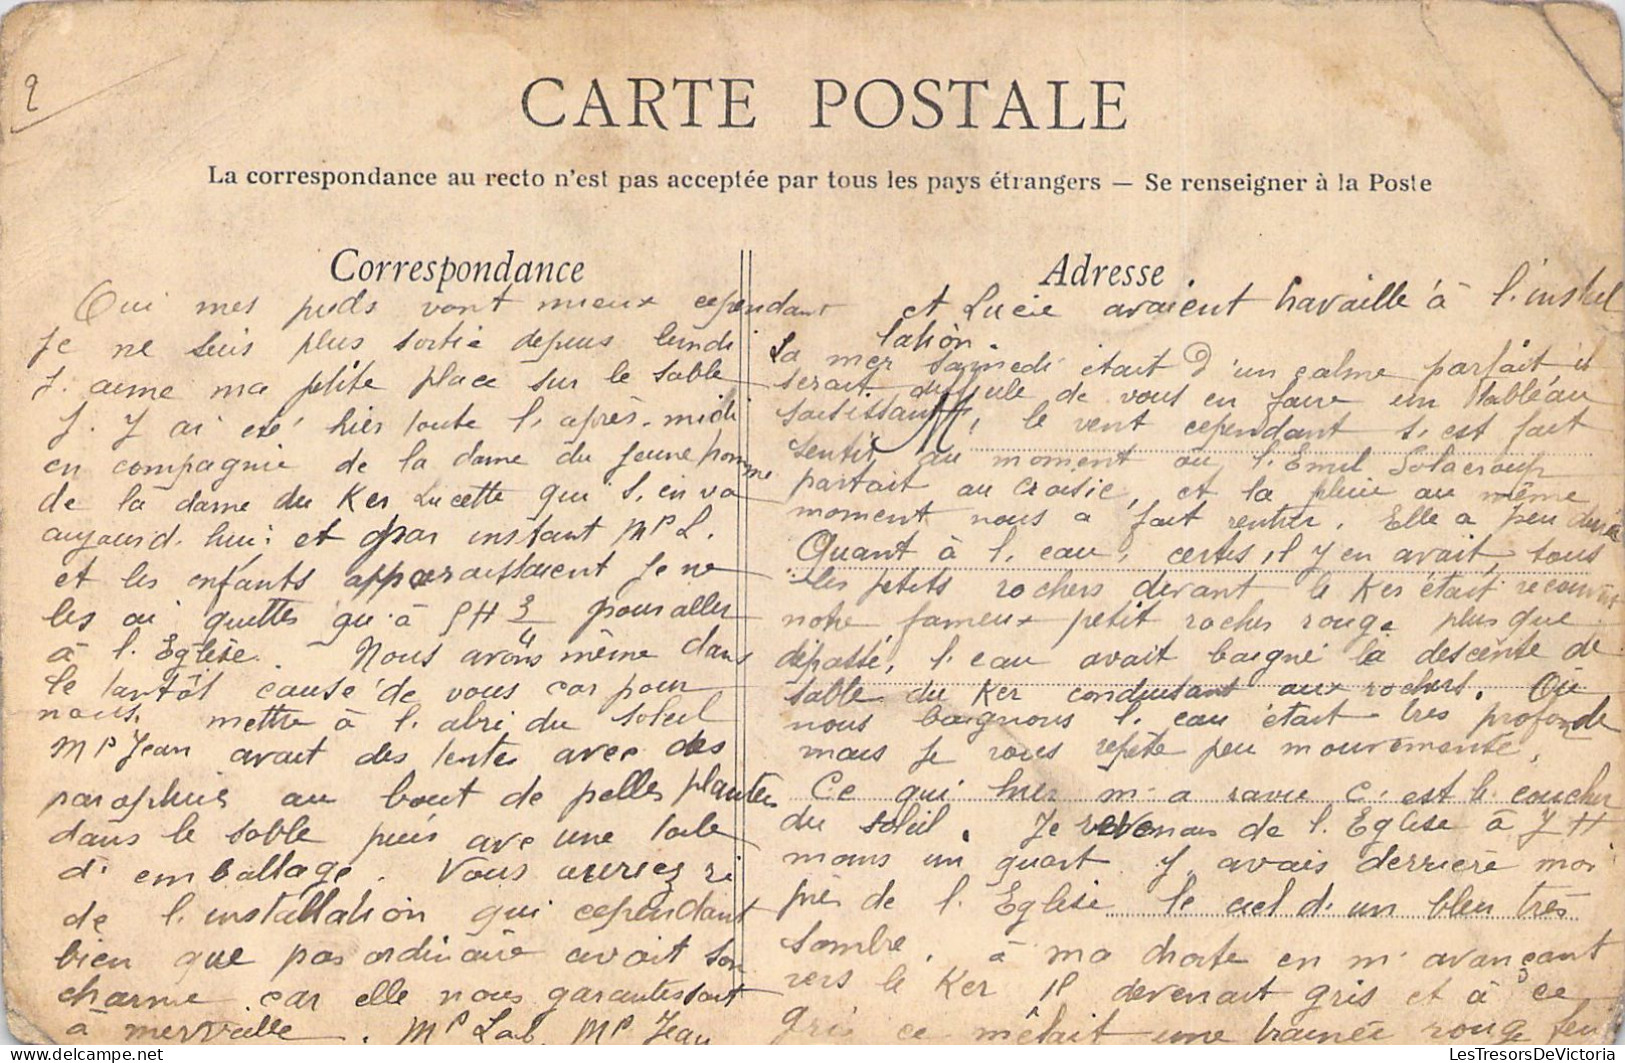 2
CARTE POSTALE
La correspondance au recto n'est pas acceptée par tous les pays étrangers — Se renseigner à la Poste
Correspondance
Oui mes pieds vont mieux cependant
je ne suis plus sortie depuis lundi
J. aime ma petite place sur le sable
J. y ai été hier toute l. après-midi
en compagnie de la dame du jeune homme
de la dame du Ker Lucette qui s. en va
aujourd. hui: et par instant Mr L.
et les enfants apparaissaient je ne
les ai quittés qu. à 5H 3/4 pour aller
à l. Eglise. Nous avons même dans
le tantôt causé de vous car pour
nous mettre à l. abri du soleil
Mr Jean avait des tentes avec des
parapluis au bout de pelles plantées
dans le sable puis ave une toile
d. emballage. Vous auriez ri
de l. installation qui cependant
bien que pas ordinaire avait son
charme car elle nous garantissait
à merveille. Mr Lab. Mr Jean
Adresse
et Lucie avaient travaillé à l. instal
lation.
La mer samedi était d'un calme parfait, il
serait difficile de vous en faire un tableau
saisissant, le vent cependant s. est fait
sentir au moment où l. Emil Solacroup
partait au Croisic, et la pluie au même
moment nous a fait rentrer. Elle a peu durée
Quant à l. eau, certes, il y en avait, tous
les petits rochers devant le Ker était recouverts
notre fameux petit rocher rouge plus que
dépassé, l. eau avait baigné la descente de
sable du Ker conduisant aux rochers. Où
nous baignons l. eau était très profonde
mais je vous répète peu mouvementé.
Ce qui hier m. a ravie c. est le coucher
du soleil. Je revenais de l. Eglise à 7H
moins un quart y avais derrière moi
près de l. Eglise le ciel d. un bleu très
sombre. à ma droite en m. avançant
vers le Ker il devenait gris et à ce
gris ce mêlait une trainée rouge feu
LesTresorsDeVictoria